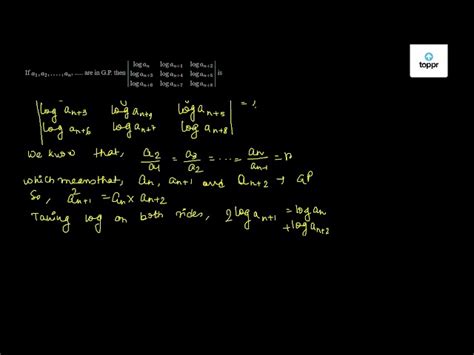 If a₁, a₂, ....., aₙ, ..... are in G.P. then | log aₙ log aₙ₊₁ log aₙ₊₂ | is
| log aₙ₊₃ log aₙ₊₄ log aₙ₊₅ |
| log aₙ₊₆ log aₙ₊₇ log aₙ₊₈ |
toppr
| log aₙ₊₃ log aₙ₊₄ log aₙ₊₅ | = ?
| log aₙ₊₆ log aₙ₊₇ log aₙ₊₈ |
we know that, a₂/a₁ = a₃/a₂ = ... = aₙ/aₙ₋₁ = r
which means that, aₙ, aₙ₊₁ and aₙ₊₂ → GP
So, a²ₙ₊₁ = aₙ × aₙ₊₂
Taking log on both sides, 2 log aₙ₊₁ = log aₙ
+ log aₙ₊₂